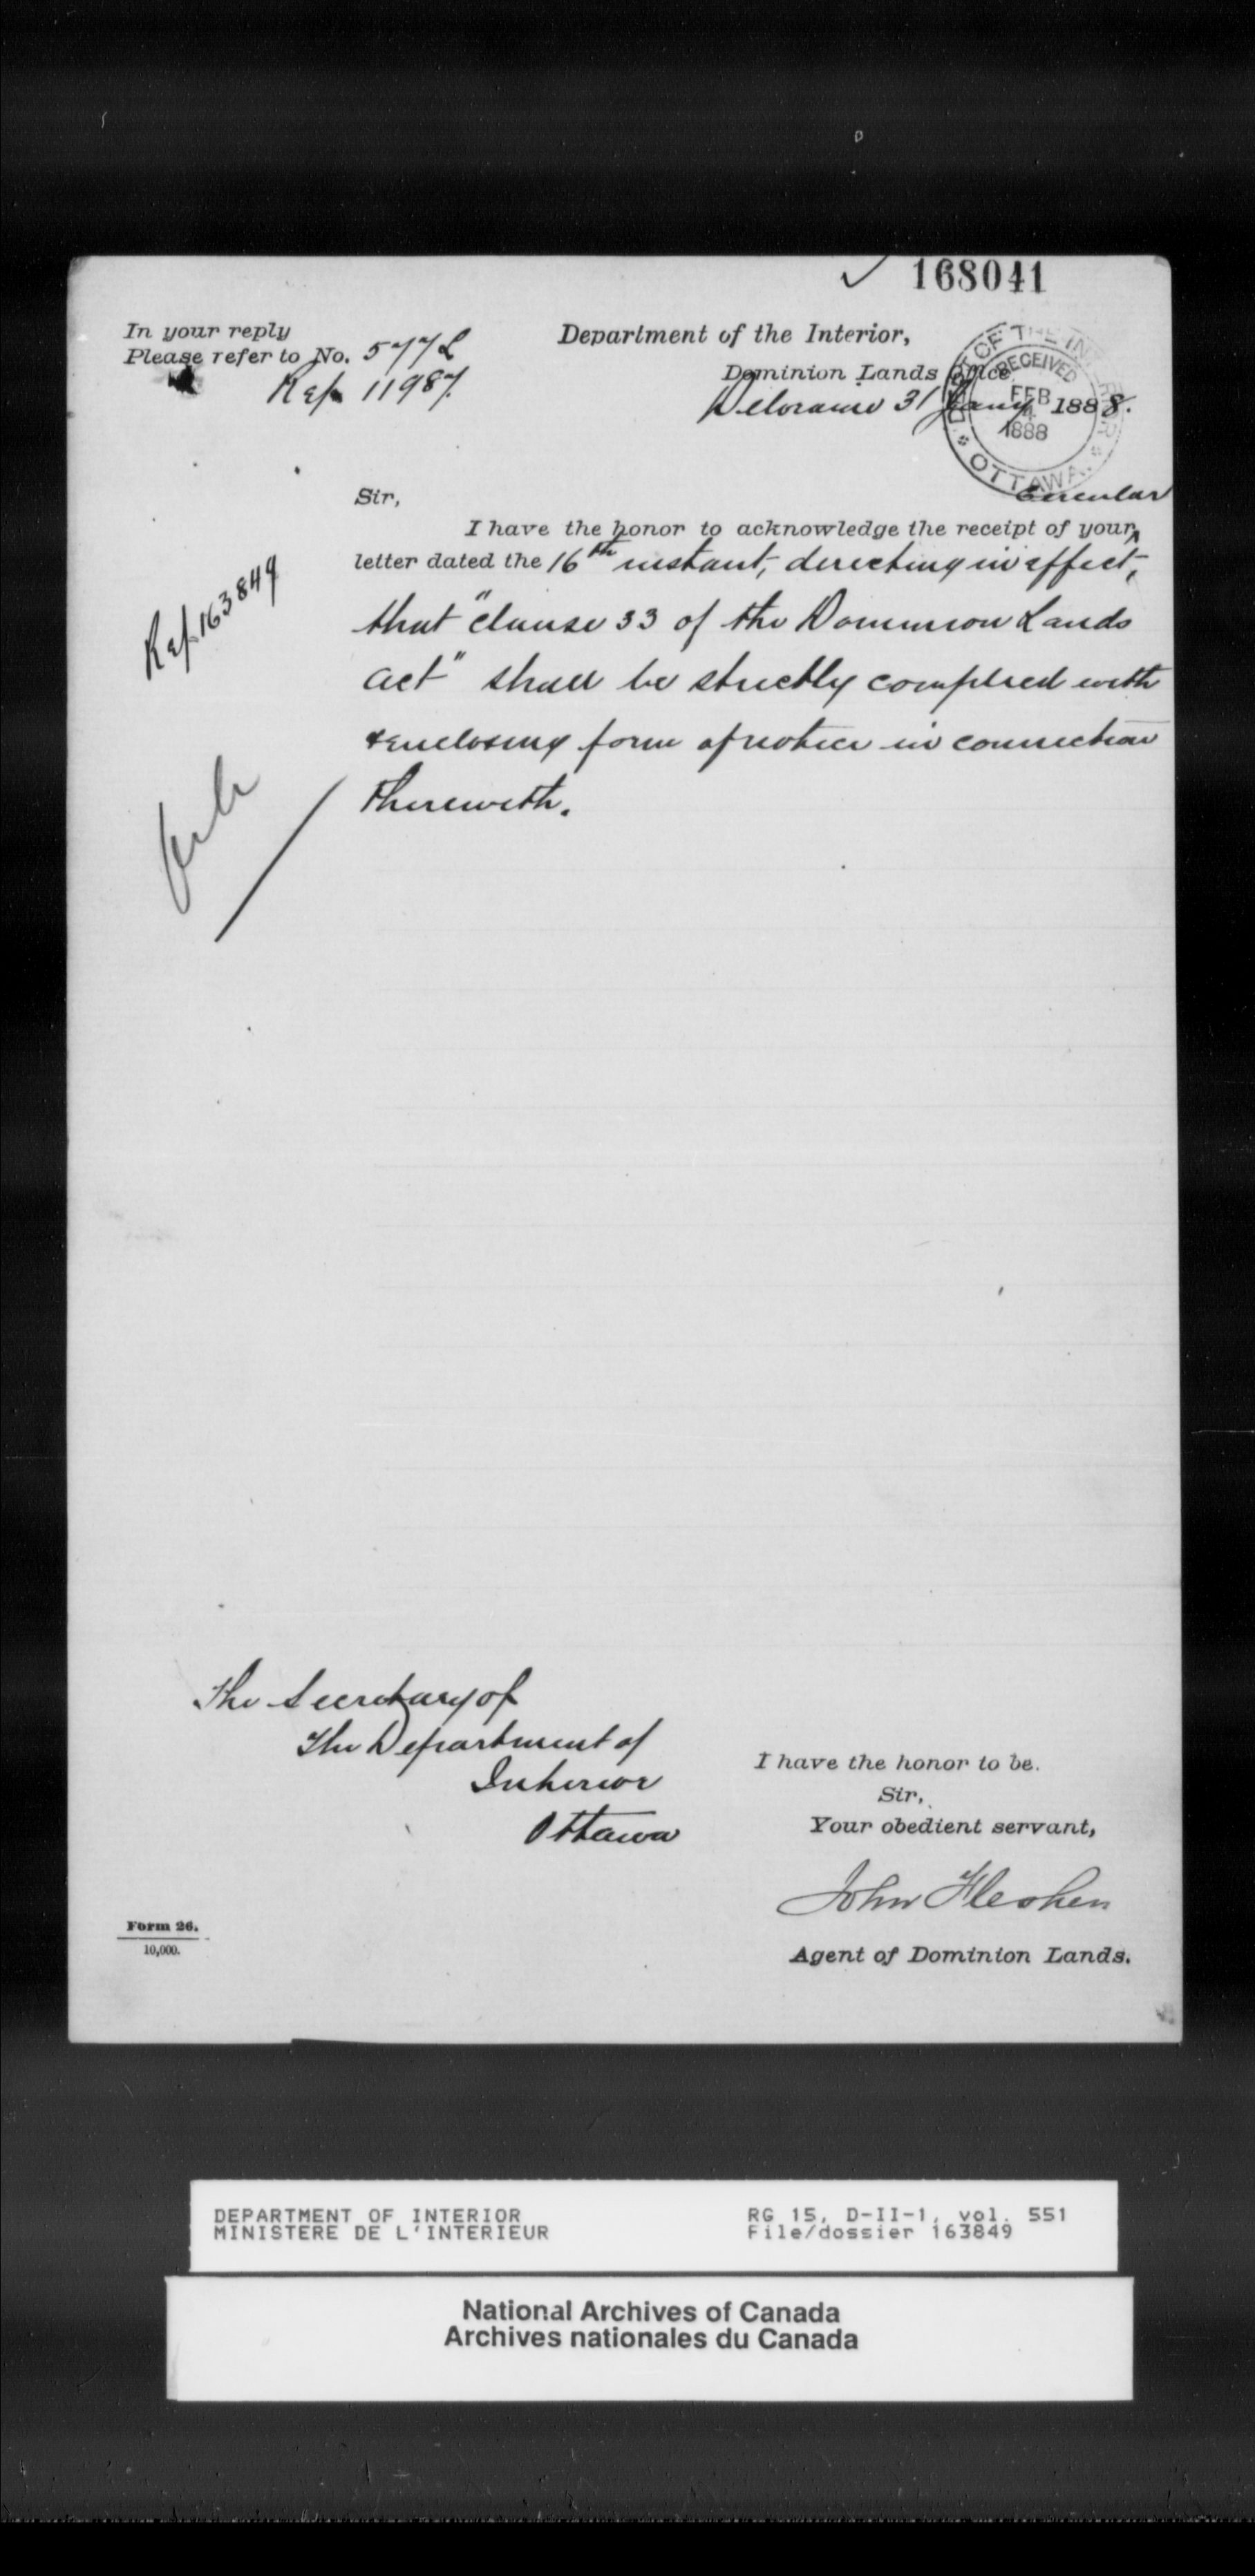 168041
In your reply
Please refer to No. 577 L
Ref 11987
Department of the Interior,
Dominion Lands Office
Deloraine 31 Jany 1888.
DEPT OF THE INTERIOR
RECEIVED
FEB
4
1888
OTTAWA.
Ref 163849
Sir,
Circular
I have the honor to acknowledge the receipt of your
letter dated the 16th instant, directing in effect,
that "clause 33 of the Dominion Lands
act" shall be strictly complied with
& enclosing form of notice in connection
therewith.
The Secretary of
The Department of
Interior
Ottawa
I have the honor to be.
Sir,
Your obedient servant,
John Flesher
Agent of Dominion Lands.
Form 26.
10,000.
DEPARTMENT OF INTERIOR
MINISTERE DE L'INTERIEUR
RG 15, D-II-1, vol. 551
File/dossier 163849
National Archives of Canada
Archives nationales du Canada